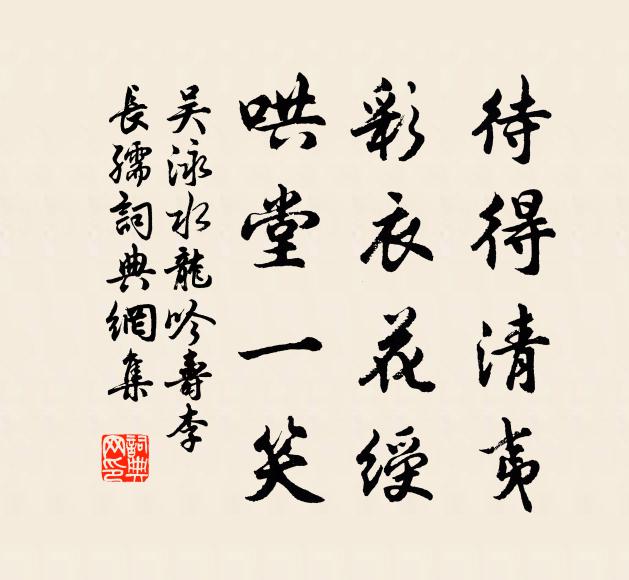 待得清夷
彩衣花綬
哄堂一笑
吴泳水龍吟壽李
長孺詞典網集
詞典网印